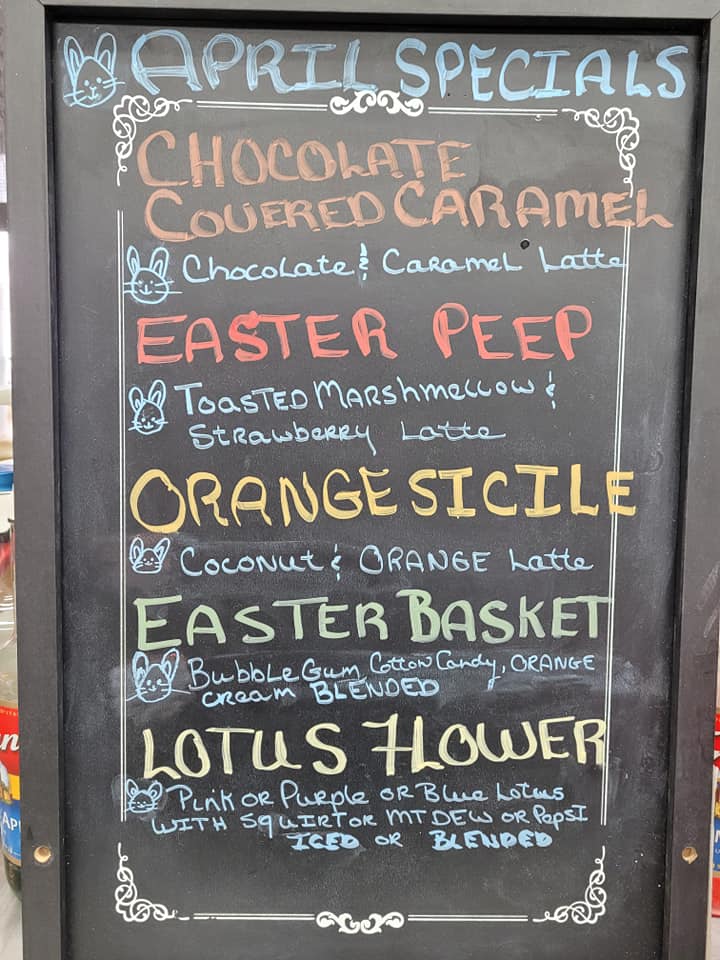 APRIL SPECIALS
CHOCOLATE
COVERED CARAMEL
Chocolate & Caramel Latte
EASTER PEEP
Toasted Marshmellow &
Strawberry Latte
ORANGESICILE
Coconut & ORANGE Latte
EASTER BASKET
Bubble Gum Cotton Candy, ORANGE
cream BLENDED
LOTUS FLOWER
Pink or Purple or Blue Lotus
WITH SQUIRT OR MT DEW OR Pepsi
ICED OR BLENDED